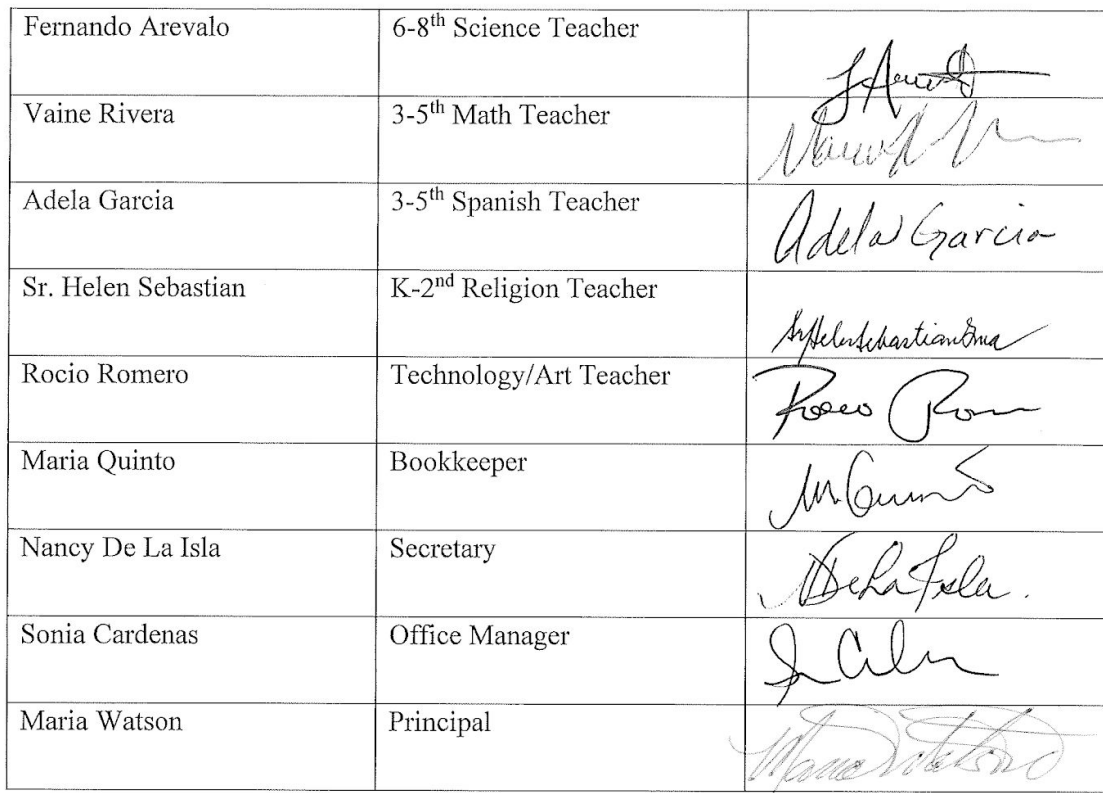 Fernando Arevalo 6-8th Science Teacher
Vaine Rivera 3-5th Math Teacher
Adela Garcia 3-5th Spanish Teacher Adela Garcia
Sr. Helen Sebastian K-2nd Religion Teacher Sr Helen Sebastian
Rocio Romero Technology/Art Teacher
Maria Quinto Bookkeeper
Nancy De La Isla Secretary NDeLaIsla.
Sonia Cardenas Office Manager
Maria Watson Principal Maria Watson